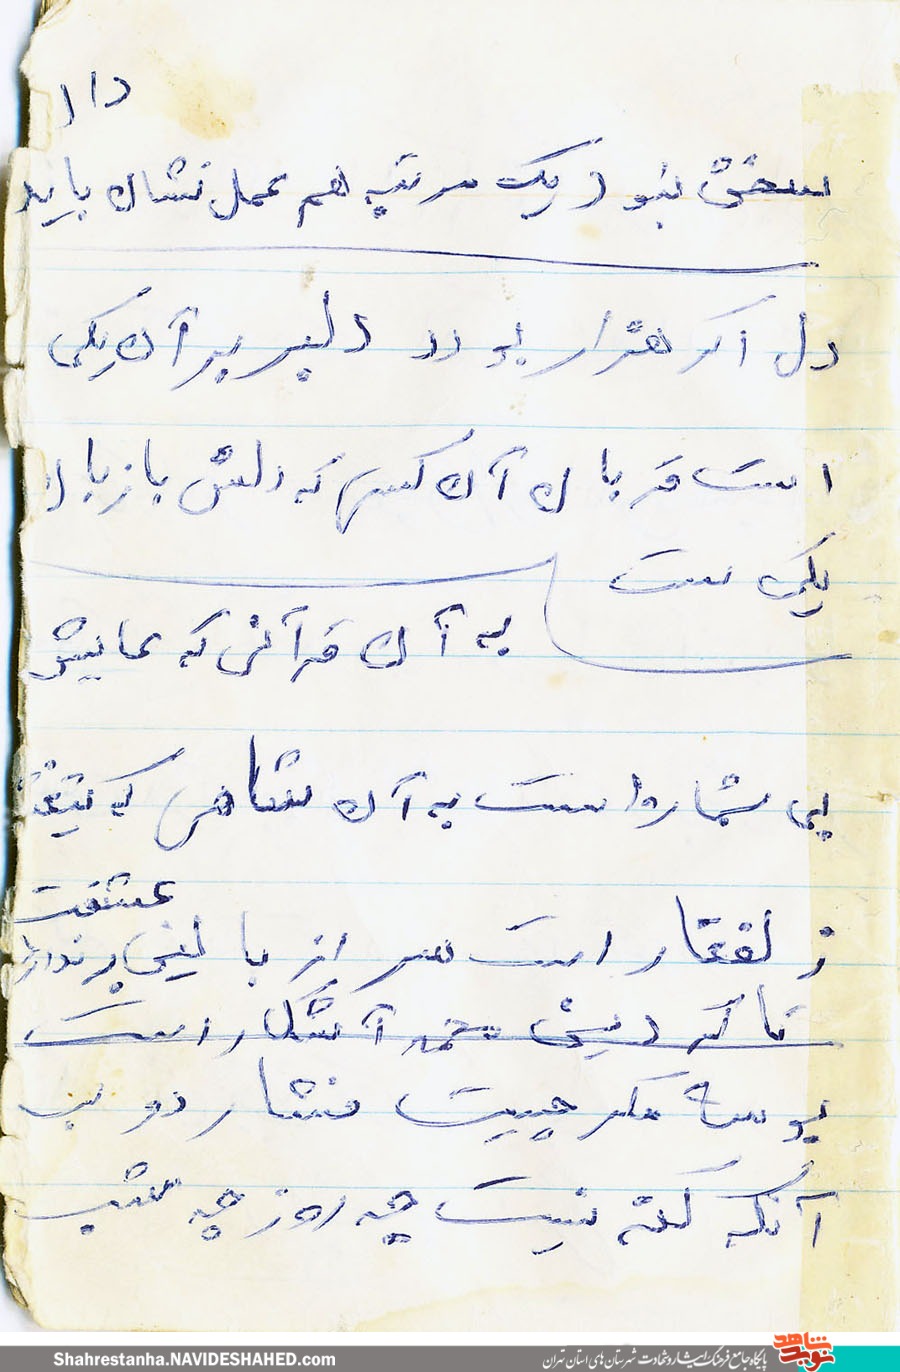 داد
سخنی نبود یک مرتبه هم عمل نشان باید
دل اگر هزار بود دلبر بر آن یکی
است قربان آن کسی که دلش با زبان
یکی ست
به آن قرآنی که عایش
بی شمار است به آن شاهی که تیغش
زلفقار است سر از بالینی بر ندارم عشقت
تا که دینی محمد آشکار است
بوسه مگر چیست فشار دو لب
آنکه گنه نیست چه روز چه شب
Shahrestanha.NAVIDESHAHED.com
نوید شاهد
پایگاه جامع فرهنگ ایثار و شهادت شهرستان های استان تهران